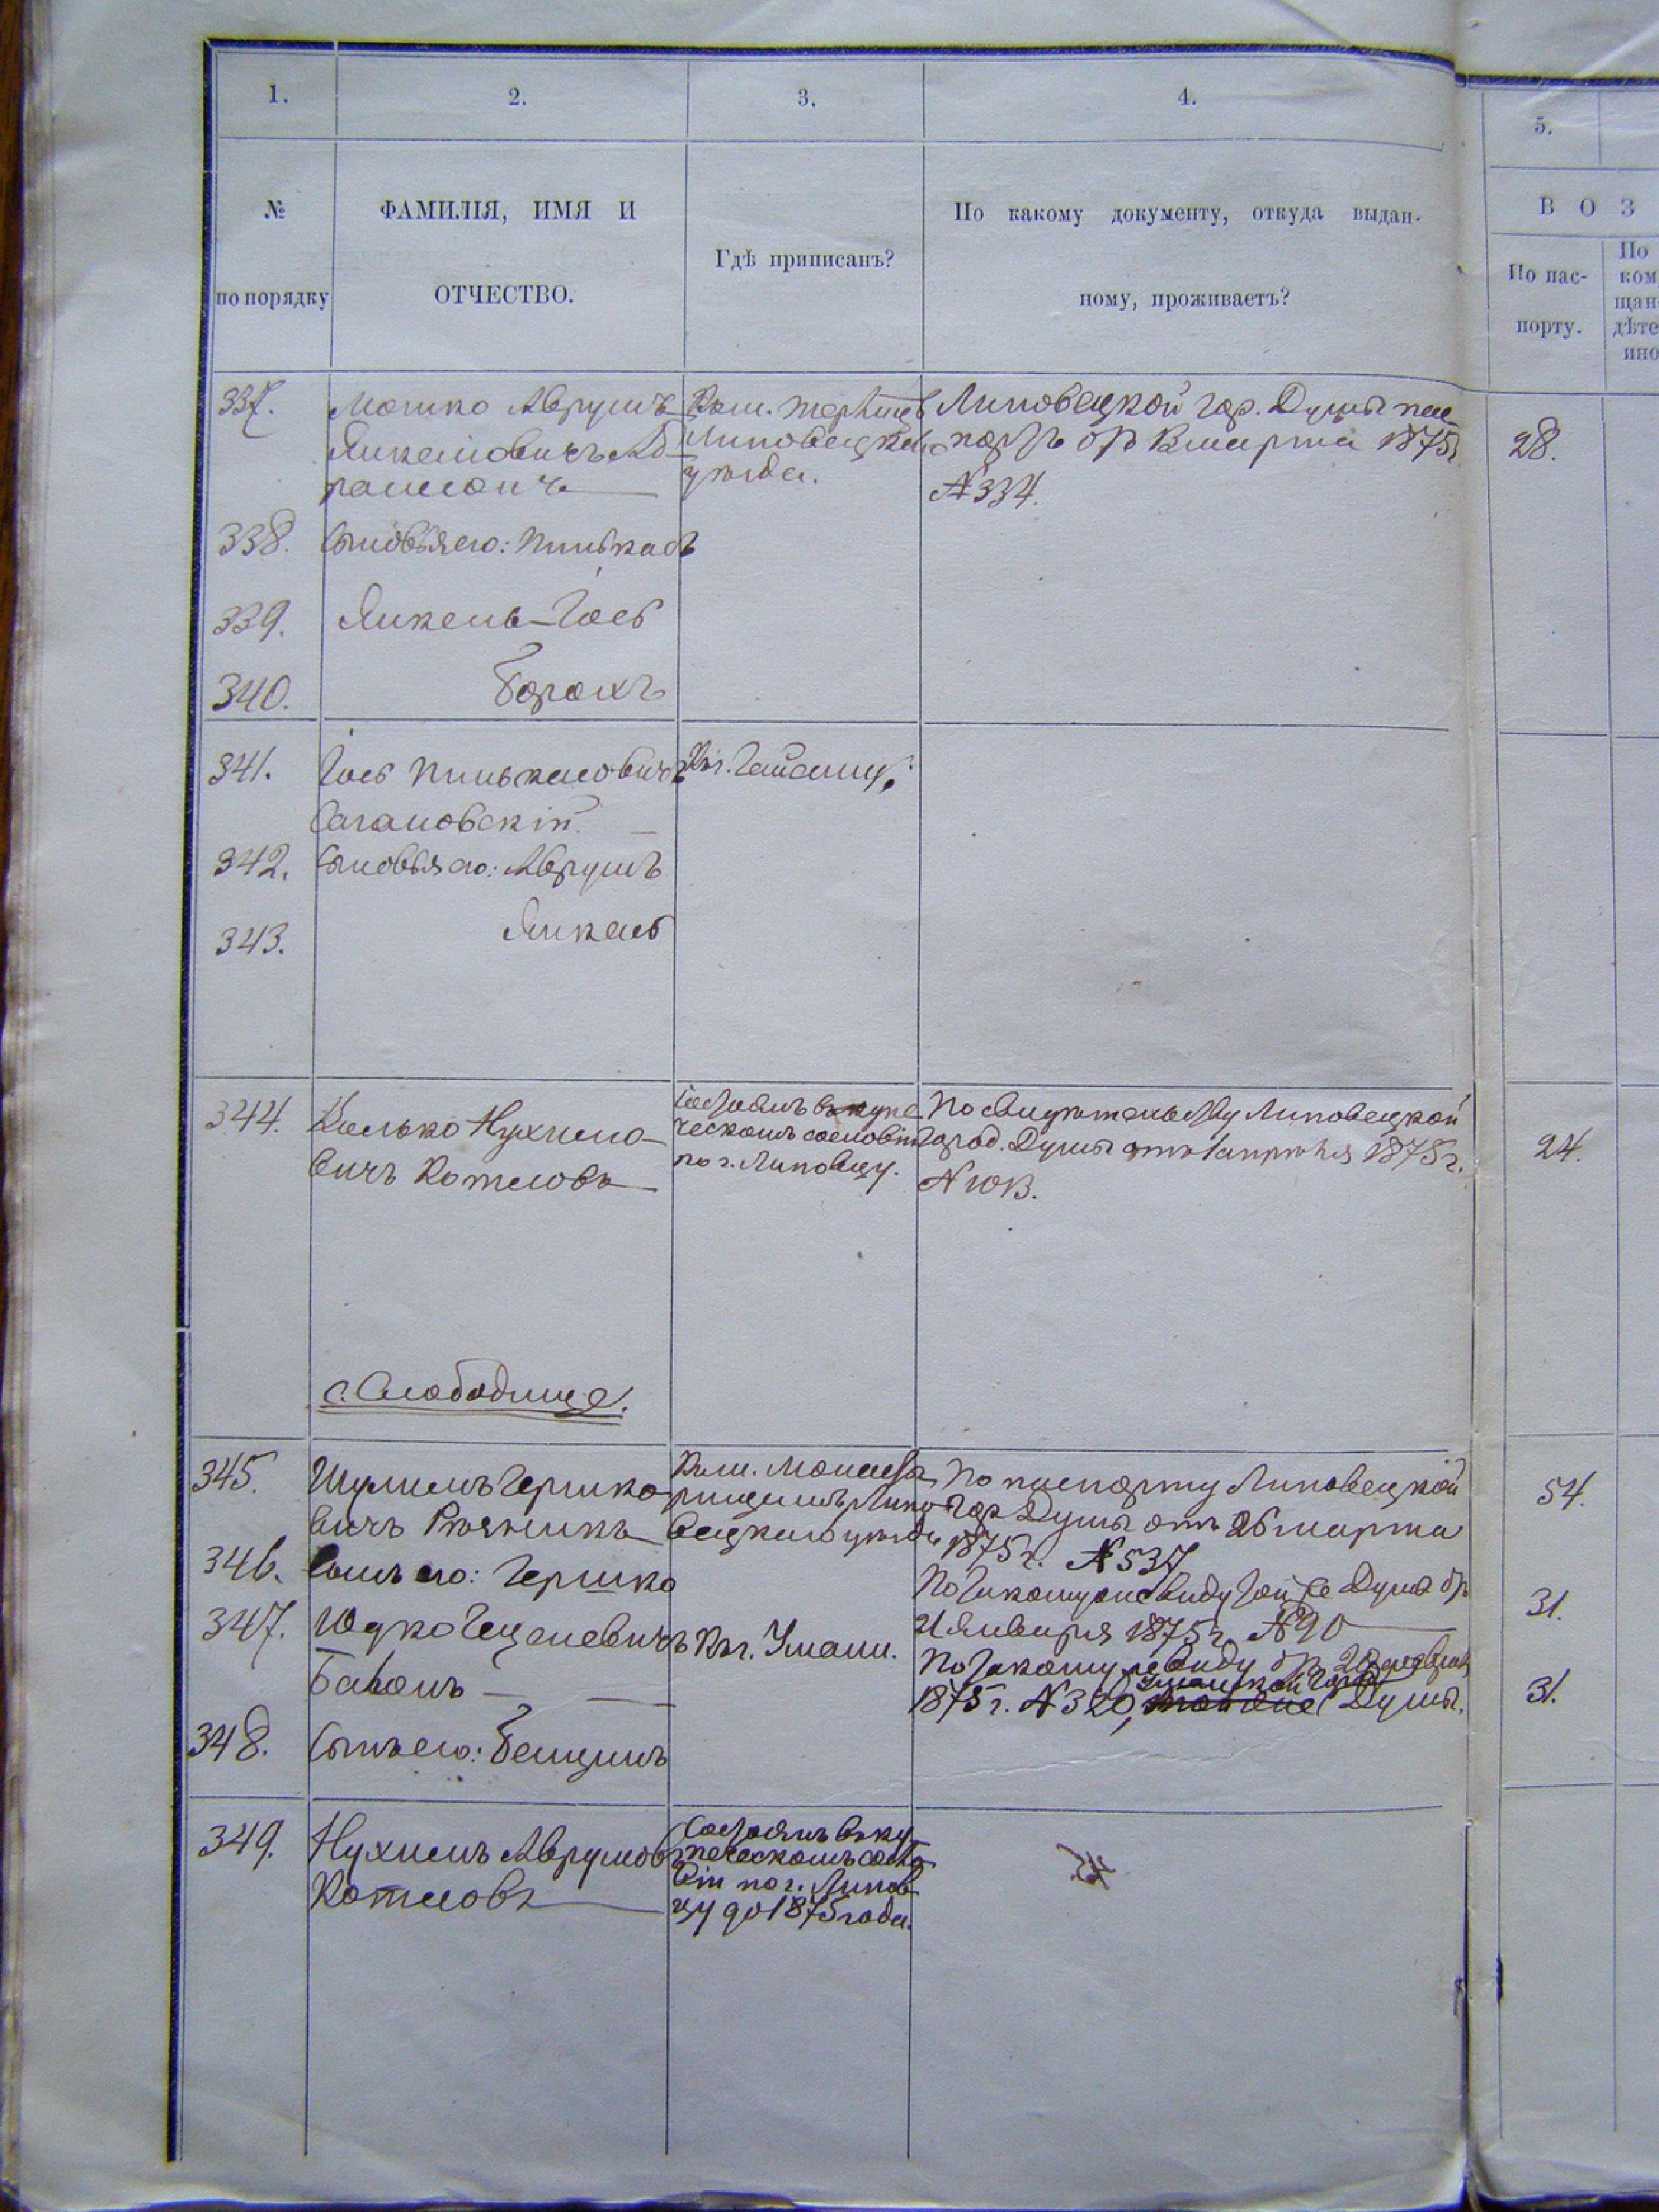 1. 2. 3. 4. 5.
№ по порядку
ФАМИЛІЯ, ИМЯ И
ОТЧЕСТВО.
Гдѣ приписанъ?
По какому документу, откуда выдан-
ному, проживаетъ?
В О З
По пас-
порту.
По
ком
щан
дѣте
ино
337. Мошко Аврумъ
Янкелiовичъ Аб-
рамович
Липовецкаго
уѣзда.
Липовецкой гор. Думы пас
портъ отъ 8 марта 1875 г.
№ 334.
28.
338. Сыновья его: Пинькасъ
339. Янкель-Iось
340. Борохъ
341. Iось Пинькасовичъ
Сагановскій.
Къ г. Гайсину.
342. Сыновья его: Аврумъ
343. Янкель
344. Колько Нухимо-
вичъ Котловъ
Состоялъ въ купе
ческомъ сословіи
по г. Липовцу.
По свидѣтельству Липовецкой
город. Думы отъ 1 апрѣля 1875 г.
24.
с. Слободище.
345. Шулимъ Гершко-
вичъ Рѣзникъ
Къ м. Монасты
рищамъ Липо-
вецкаго уѣзда
По паспорту Липовецкой
гор. Думы отъ 26 марта
1875 г. № 537
54.
346. Сынъ его: Гершко
По такому же виду той же Думы отъ
21 Января 1875 г. № 90
31.
347. Юдко Гецелевичъ
Бавонъ
Къ г. Умани.
По такому же виду отъ 20 февраля
Уманской Город.
1875 г. № 320, той же Думы.
31.
348. Сынъ его: Бенцинъ
349. Нухимъ Аврумовъ
Котловъ
Состоялъ въ ку
печескомъ сосло
віи по г. Липов
цу до 1875 года.